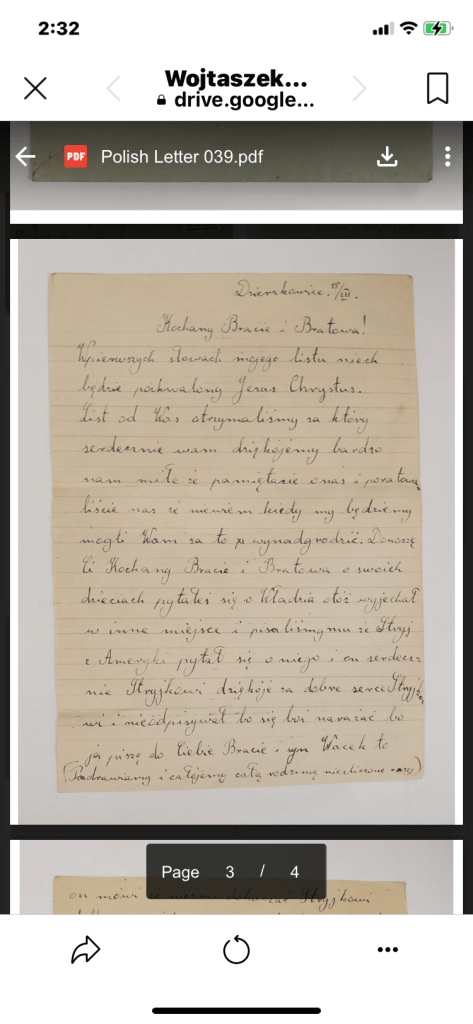 2:32
Wojtaszek...
drive.google...
PDF Polish Letter 039.pdf
Dzierzkowice. 15/III.
Kochany Bracie i Bratowa!
Wpierwszych słowach mojego listu niech
będzie pochwalony Jezus Chrystus.
List od Was otrzymaliśmy za który
serdecznie wam dziękójemy bardzo
nam miłe że pamiętacie onas i poratowa
liście nas że niewiem kiedy my będziemy
mogli Wam za to wynadgrodzić. Donoszę
Ci Kochany Bracie i Bratowa o swoich
dzieciach pytałeś się o Władzia otóż wyjechał
w inne miejsce i pisaliśmymu że Stryj
z Ameryki pytał się o niego i on serdecz
nie Stryjkowi dziękóje za dobre serce Stryjko
wi i nieodpisywał bo się boi narażać bo
ja piszę do Ciebie Bracie i syn Wacek to
(Pozdrawiamy i całójemy całą rodzinę niezliczone razy)
Page 3 / 4
on mówi że Stryjkowi